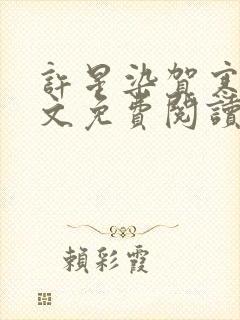 許星染賀寒
文免費閱讀
賴彩霞